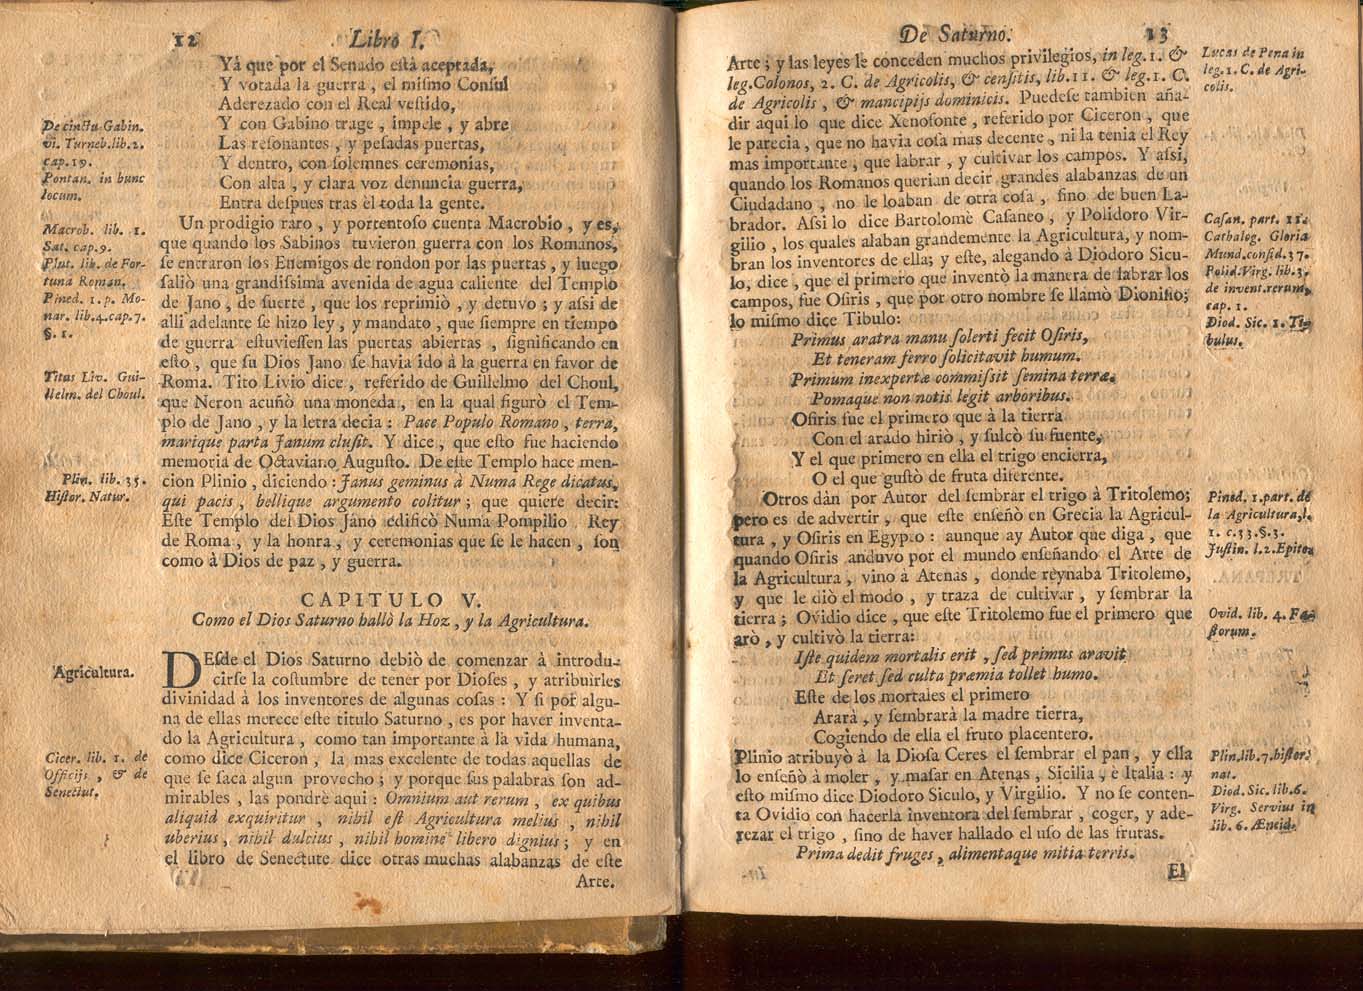 12
Libro I.
Yá que por el Senado eſtà aceptada,
Y votada la guerra, el miſmo Conſul
Aderezado con el Real veſtido,
Y con Gabino trage, impele, y abre
Las reſonantes, y peſadas puertas,
Y dentro, con ſolemnes ceremonias,
Con alta, y clara voz denuncia guerra,
Entra deſpues tras èl toda la gente.
De cinctu Gabin.
vi. Turneb. lib. 2.
cap. 19.
Pontan. in hunc
locum.
Un prodigio raro, y portentoſo cuenta Macrobio, y es,
que quando los Sabinos tuvieron guerra con los Romanos,
ſe entraron los Enemigos de rondon por las puertas, y luego
ſaliò una grandiſsima avenida de agua caliente del Templo
de Jano, de ſuerte, que los reprimiò, y detuvo; y aſsi de
alli adelante ſe hizo ley, y mandato, que ſiempre en tiempo
de guerra eſtuvieſſen las puertas abiertas, ſignificando en
eſto, que ſu Dios Jano ſe havia ido à la guerra en favor de
Roma. Tito Livio dice, referido de Guillelmo del Choul,
que Neron acuñò una moneda, en la qual figurò el Tem-
plo de Jano, y la letra decia: Pace Populo Romano, terra,
marique parta Janum cluſit. Y dice, que eſto fue haciendo
memoria de Octaviano Auguſto. De eſte Templo hace men-
cion Plinio, diciendo: Janus geminus à Numa Rege dicatus,
qui pacis, bellique argumento colitur; que quiere decir:
Eſte Templo del Dios Jano edificò Numa Pompilio Rey
de Roma, y la honra, y ceremonias que ſe le hacen, ſon
como à Dios de paz, y guerra.
Macrob. lib. 1.
Sat. cap. 9.
Plut. lib. de For-
tuna Roman.
Pined. 1. p. Mo-
nar. lib. 4. cap. 7.
§. 1.
Titus Liv. Gui-
llelm. del Choul.
Plin. lib. 35.
Hiſtor. Natur.
CAPITULO V.
Como el Dios Saturno hallò la Hoz, y la Agricultura.
DEſde el Dios Saturno debiò de comenzar à introdu-
cirſe la coſtumbre de tener por Dioſes, y atribuirles
divinidad à los inventores de algunas coſas: Y ſi por algu-
na de ellas merece eſte titulo Saturno, es por haver inventa-
do la Agricultura, como tan importante à la vida humana,
como dice Ciceron, la mas excelente de todas aquellas de
que ſe ſaca algun provecho; y porque ſus palabras ſon ad-
mirables, las pondrè aqui: Omnium aut rerum, ex quibus
aliquid exquiritur, nihil eſt Agricultura melius, nihil
uberius, nihil dulcius, nihil homine libero dignius; y en
el libro de Senectute dice otras muchas alabanzas de eſte
Arte.
Agricultura.
Cicer. lib. 1. de
Officijs, & de
Senectut.
De Saturno.
13
Arte; y las leyes le conceden muchos privilegios, in leg. 1. &
leg. Colonos, 2. C. de Agricolis, & cenſitis, lib. 11. & leg. 1. C.
de Agricolis, & mancipijs dominicis. Puedeſe tambien aña-
dir aqui lo que dice Xenofonte, referido por Ciceron, que
le parecia, que no havia coſa mas decente, ni la tenia el Rey
mas importante, que labrar, y cultivar los campos. Y aſsi,
quando los Romanos querian decir grandes alabanzas de un
Ciudadano, no le loaban de otra coſa, ſino de buen La-
brador. Aſsi lo dice Bartolomè Caſaneo, y Polidoro Vir-
gilio, los quales alaban grandemente la Agricultura, y nom-
bran los inventores de ella; y eſte, alegando à Diodoro Sicu-
lo, dice, que el primero que inventò la manera de labrar los
campos, fue Oſiris, que por otro nombre ſe llamò Dioniſio;
lo miſmo dice Tibulo:
Lucas de Pena in
leg. 1. C. de Agri-
colis.
Caſan. part. 11.
Cathalog. Gloria
Mund. conſid. 37.
Polid. Virg. lib. 3.
de invent. rerum,
cap. 1.
Diod. Sic. 1. Ti-
bulus.
Primus aratra manu ſolerti fecit Oſiris,
Et teneram ferro ſolicitavit humum.
Primum inexpertæ commiſsit ſemina terræ.
Pomaque non notis legit arboribus.
Oſiris fue el primero que à la tierra
Con el arado hiriò, y ſulcò ſu fuente,
Y el que primero en ella el trigo encierra,
O el que guſtò de fruta diferente.
Otros dàn por Autor del ſembrar el trigo à Tritolemo;
pero es de advertir, que eſte enſeñò en Grecia la Agricul-
tura, y Oſiris en Egypto: aunque ay Autor que diga, que
quando Oſiris anduvo por el mundo enſeñando el Arte de
la Agricultura, vino à Atenas, donde reynaba Tritolemo,
y que le diò el modo, y traza de cultivar, y ſembrar la
tierra; Ovidio dice, que eſte Tritolemo fue el primero que
arò, y cultivò la tierra:
Pined. 1. part. de
la Agricultura, l.
1. c. 33. §. 3.
Juſtin. l. 2. Epito.
Ovid. lib. 4. Fa-
ſtorum.
Iſte quidem mortalis erit, ſed primus aravit
Et ſeret ſed culta præmia tollet humo.
Eſte de los mortales el primero
Ararà, y ſembrarà la madre tierra,
Cogiendo de ella el fruto placentero.
Plinio atribuyò à la Dioſa Ceres el ſembrar el pan, y ella
lo enſeñò à moler, y maſar en Atenas, Sicilia, è Italia: y
eſto miſmo dice Diodoro Siculo, y Virgilio. Y no ſe conten-
ta Ovidio con hacerla inventora del ſembrar, coger, y ade-
rezar el trigo, ſino de haver hallado el uſo de las frutas.
Prima dedit fruges, alimentaque mitia terris.
El
Plin. lib. 7. hiſtor.
nat.
Diod. Sic. lib. 6.
Virg. Servius in
lib. 6. Æneid.